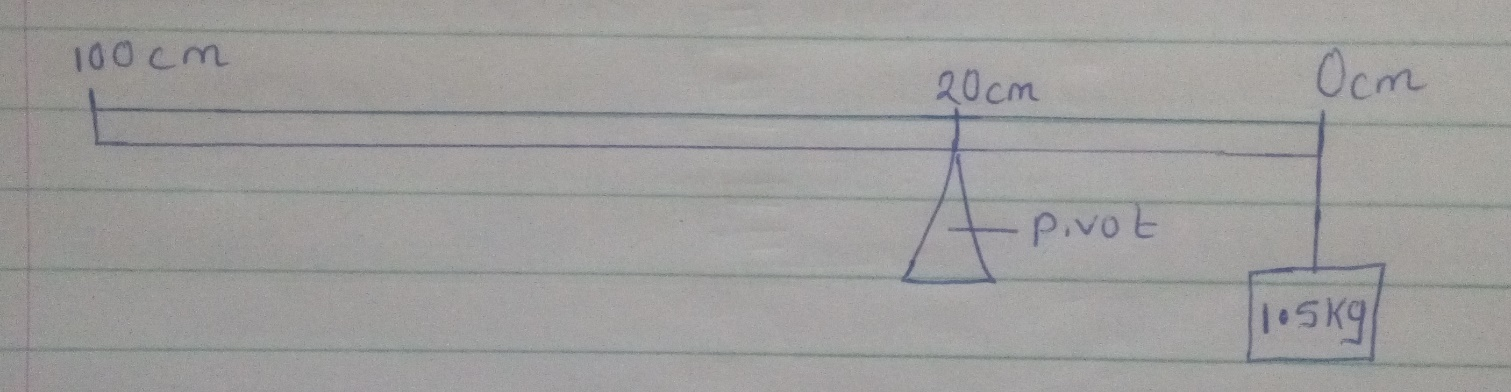 100cm
20cm
0cm
pivot
1.5Kg